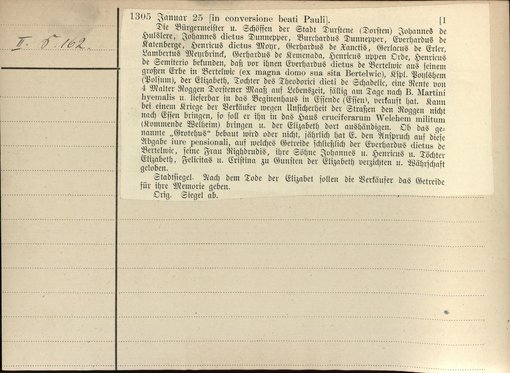 II. 8 162.
1305 Januar 25 [in conversione beati Pauli]. [1
Die Bürgermeister u. Schöffen der Stadt Durstene (Dorsten) Johannes de
Hulslere, Johannes dictus Dunnepper, Burchardus Dunnepper, Everhardus de
Katenberge, Henricus dictus Moyr, Gerhardus de Xanctis, Gerlacus de Erler,
Lambertus Meybrinck, Gerhardus de Kemenada, Henricus uppen Orde, Henricus
de Semiterio bekunden, daß vor ihnen Everhardus dictus de Bertelwic aus seinem
großen Erbe in Bertelwic (ex magna domo sua sita Bertelwic), Kspl. Poulshem
(Polsum), der Elizabeth, Tochter des Theodorici dicti de Schadelle, eine Rente von
4 Malter Roggen Dorstener Maaß auf Lebenszeit, fällig am Tage nach B. Martini
hyemalis u. lieferbar in das Beginenhaus in Essende (Essen), verkauft hat. Kann
bei einem Kriege der Verkäufer wegen Unsicherheit der Straßen den Roggen nicht
nach Essen bringen, so soll er ihn in das Haus cruciferarum Welehem militum
(Kommende Welheim) bringen u. der Elizabeth dort aushändigen. Ob das ge-
nannte „Grotehus“ bebaut wird oder nicht, jährlich hat E. den Anspruch auf diese
Abgabe iure pensionali, auf welches Getreide schließlich der Everhardus dictus de
Bertelwic, seine Frau Righdrudis, ihre Söhne Johannes u. Henricus u. Töchter
Elizabeth, Felicitas u. Cristina zu Gunsten der Elizabeth verzichten u. Währschaft
geloben.
Stadtsiegel. Nach dem Tode der Elizabet sollen die Verkäufer das Getreide
für ihre Memorie geben.
Orig. Siegel ab.